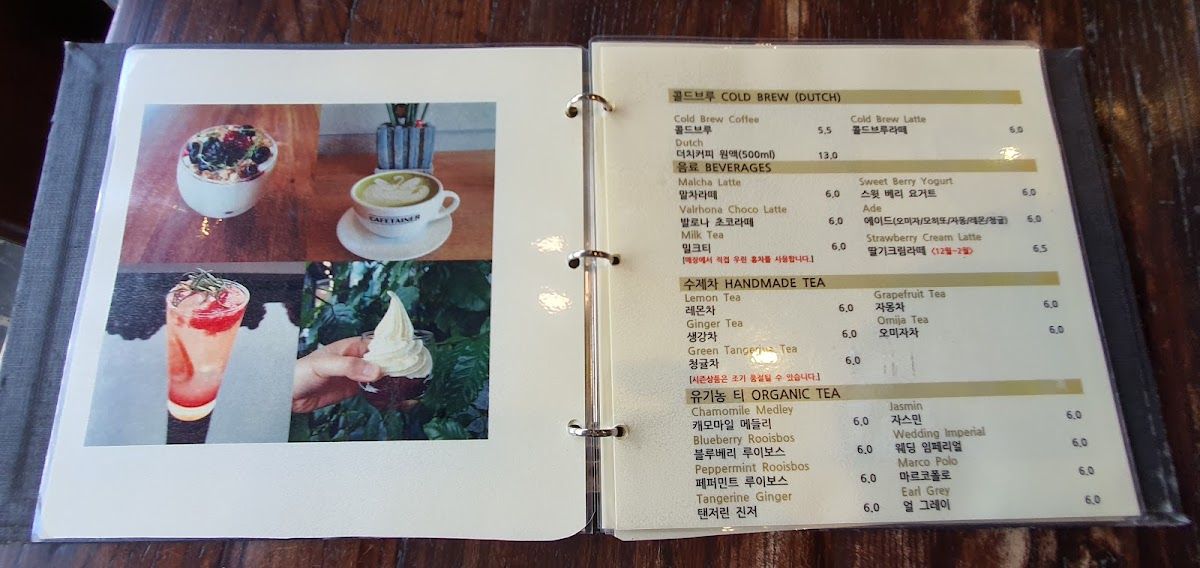 CAFETAINER
콜드브루 COLD BREW (DUTCH)
Cold Brew Coffee
콜드브루 5.5
Cold Brew Latte
콜드브루라떼 6.0
Dutch
더치커피 원액(500ml) 13.0
음료 BEVERAGES
Malcha Latte
말차라떼 6.0
Sweet Berry Yogurt
스윗 베리 요거트 6.0
Valrhona Choco Latte
발로나 초코라떼 6.0
Ade
에이드(오미자/모히또/자몽/레몬/청귤) 6.0
Milk Tea
밀크티 6.0
[매장에서 직접 우린 홍차를 사용합니다.]
Strawberry Cream Latte
딸기크림라떼 <12월~2월> 6.5
수제차 HANDMADE TEA
Lemon Tea
레몬차 6.0
Grapefruit Tea
자몽차 6.0
Ginger Tea
생강차 6.0
Omija Tea
오미자차 6.0
Green Tangerine Tea
청귤차 6.0
[시즌상품은 조기 품절될 수 있습니다.]
유기농 티 ORGANIC TEA
Chamomile Medley
캐모마일 메들리 6.0
Jasmin
자스민 6.0
Blueberry Rooisbos
블루베리 루이보스 6.0
Wedding Imperial
웨딩 임페리얼 6.0
Peppermint Rooisbos
페퍼민트 루이보스 6.0
Marco Polo
마르코폴로 6.0
Tangerine Ginger
탠저린 진저 6.0
Earl Grey
얼 그레이 6.0